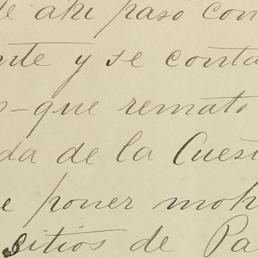 de ahi paso con
nte y se conta
s-que remato
da de la Cuest
e poner moh
sitios de Pa